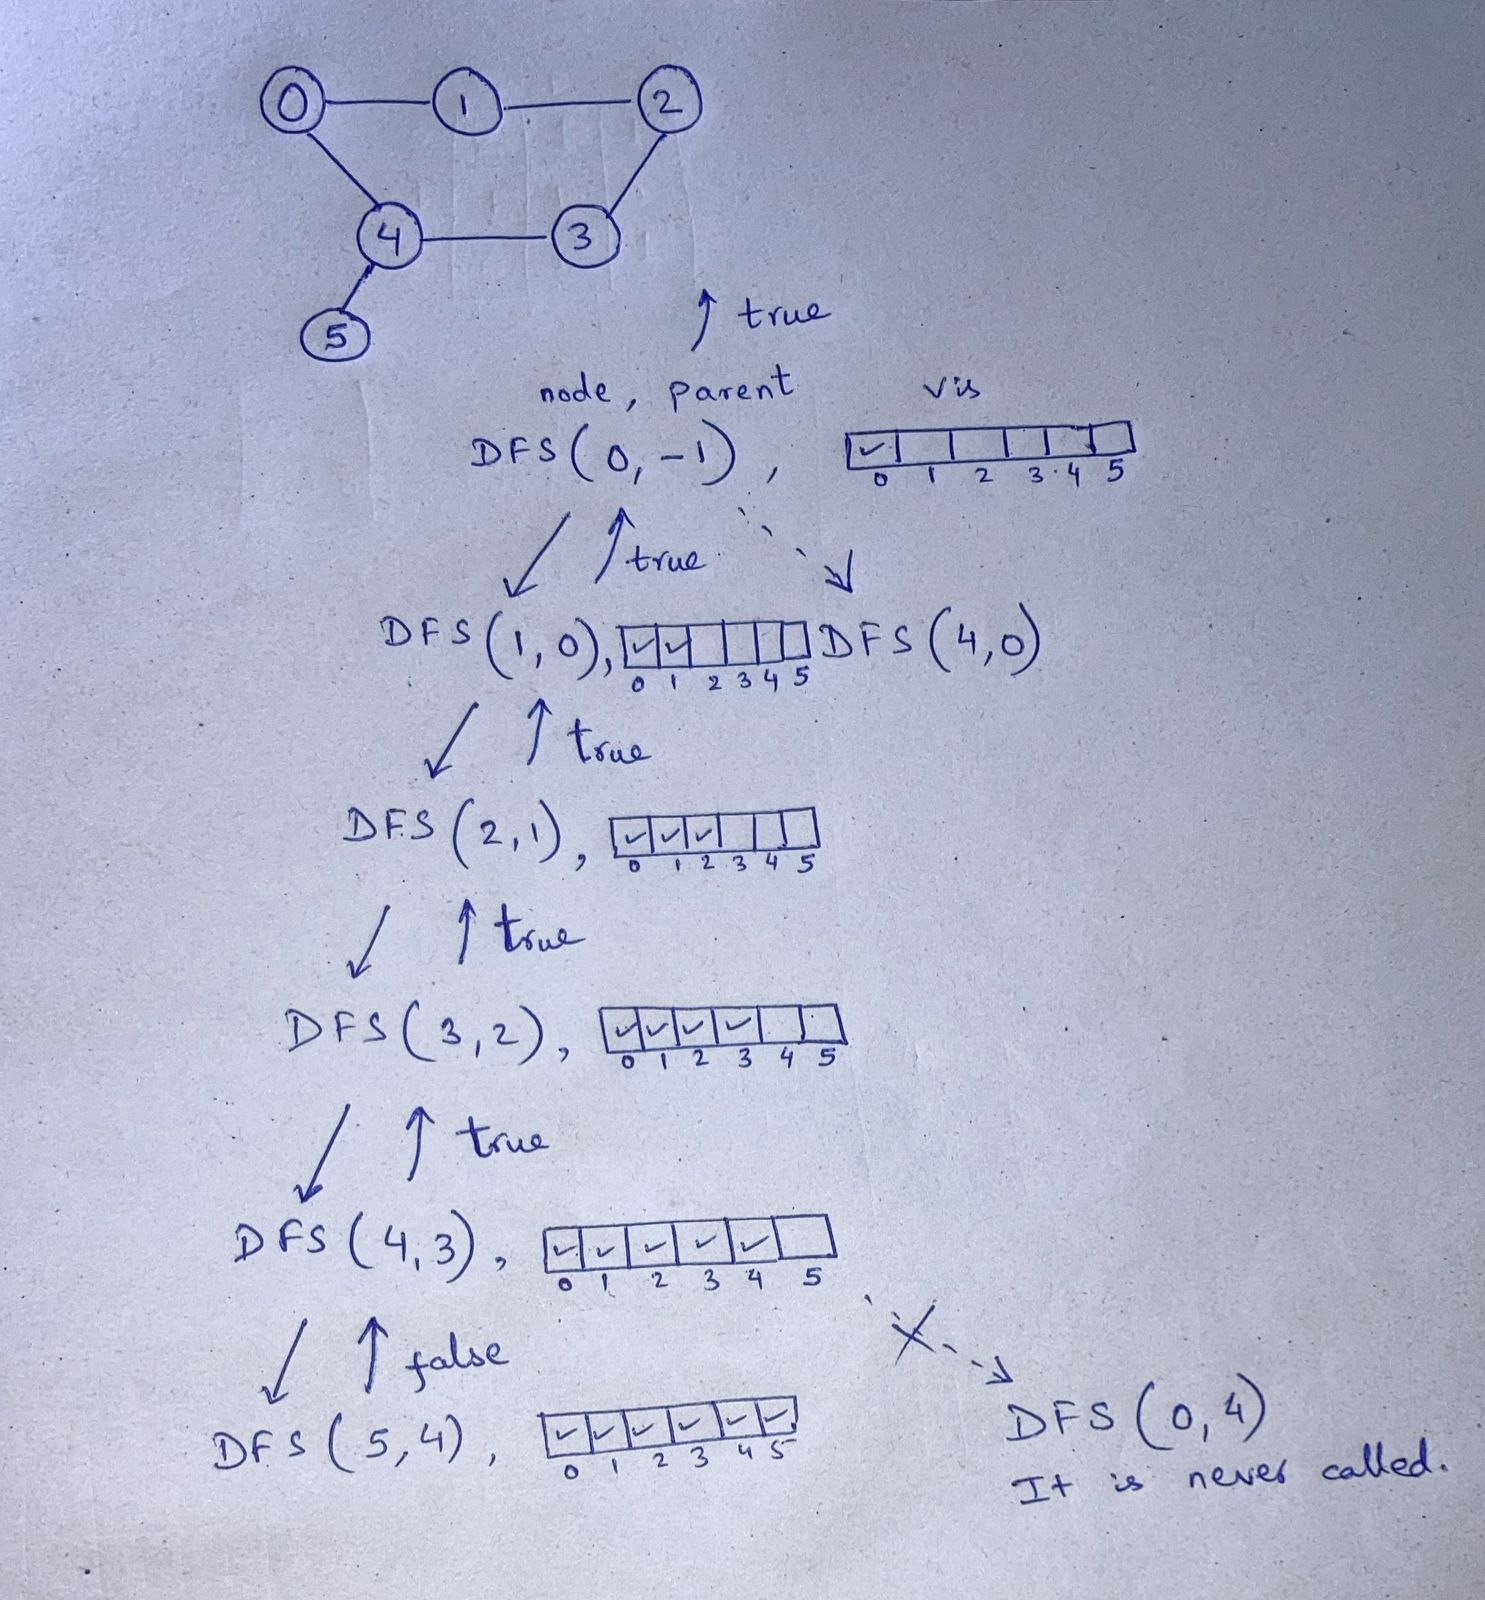 0 1 2
4 3
5
true
node, parent vis
DFS(0,-1), ✓
0 1 2 3 4 5
true
DFS(1,0), ✓ ✓ DFS(4,0)
0 1 2 3 4 5
true
DFS(2,1), ✓ ✓ ✓
0 1 2 3 4 5
true
DFS(3,2), ✓ ✓ ✓ ✓
0 1 2 3 4 5
true
DFS(4,3), ✓ ✓ ✓ ✓ ✓
0 1 2 3 4 5
false X
DFS(5,4), ✓ ✓ ✓ ✓ ✓ ✓ DFS(0,4)
0 1 2 3 4 5
It is never called.